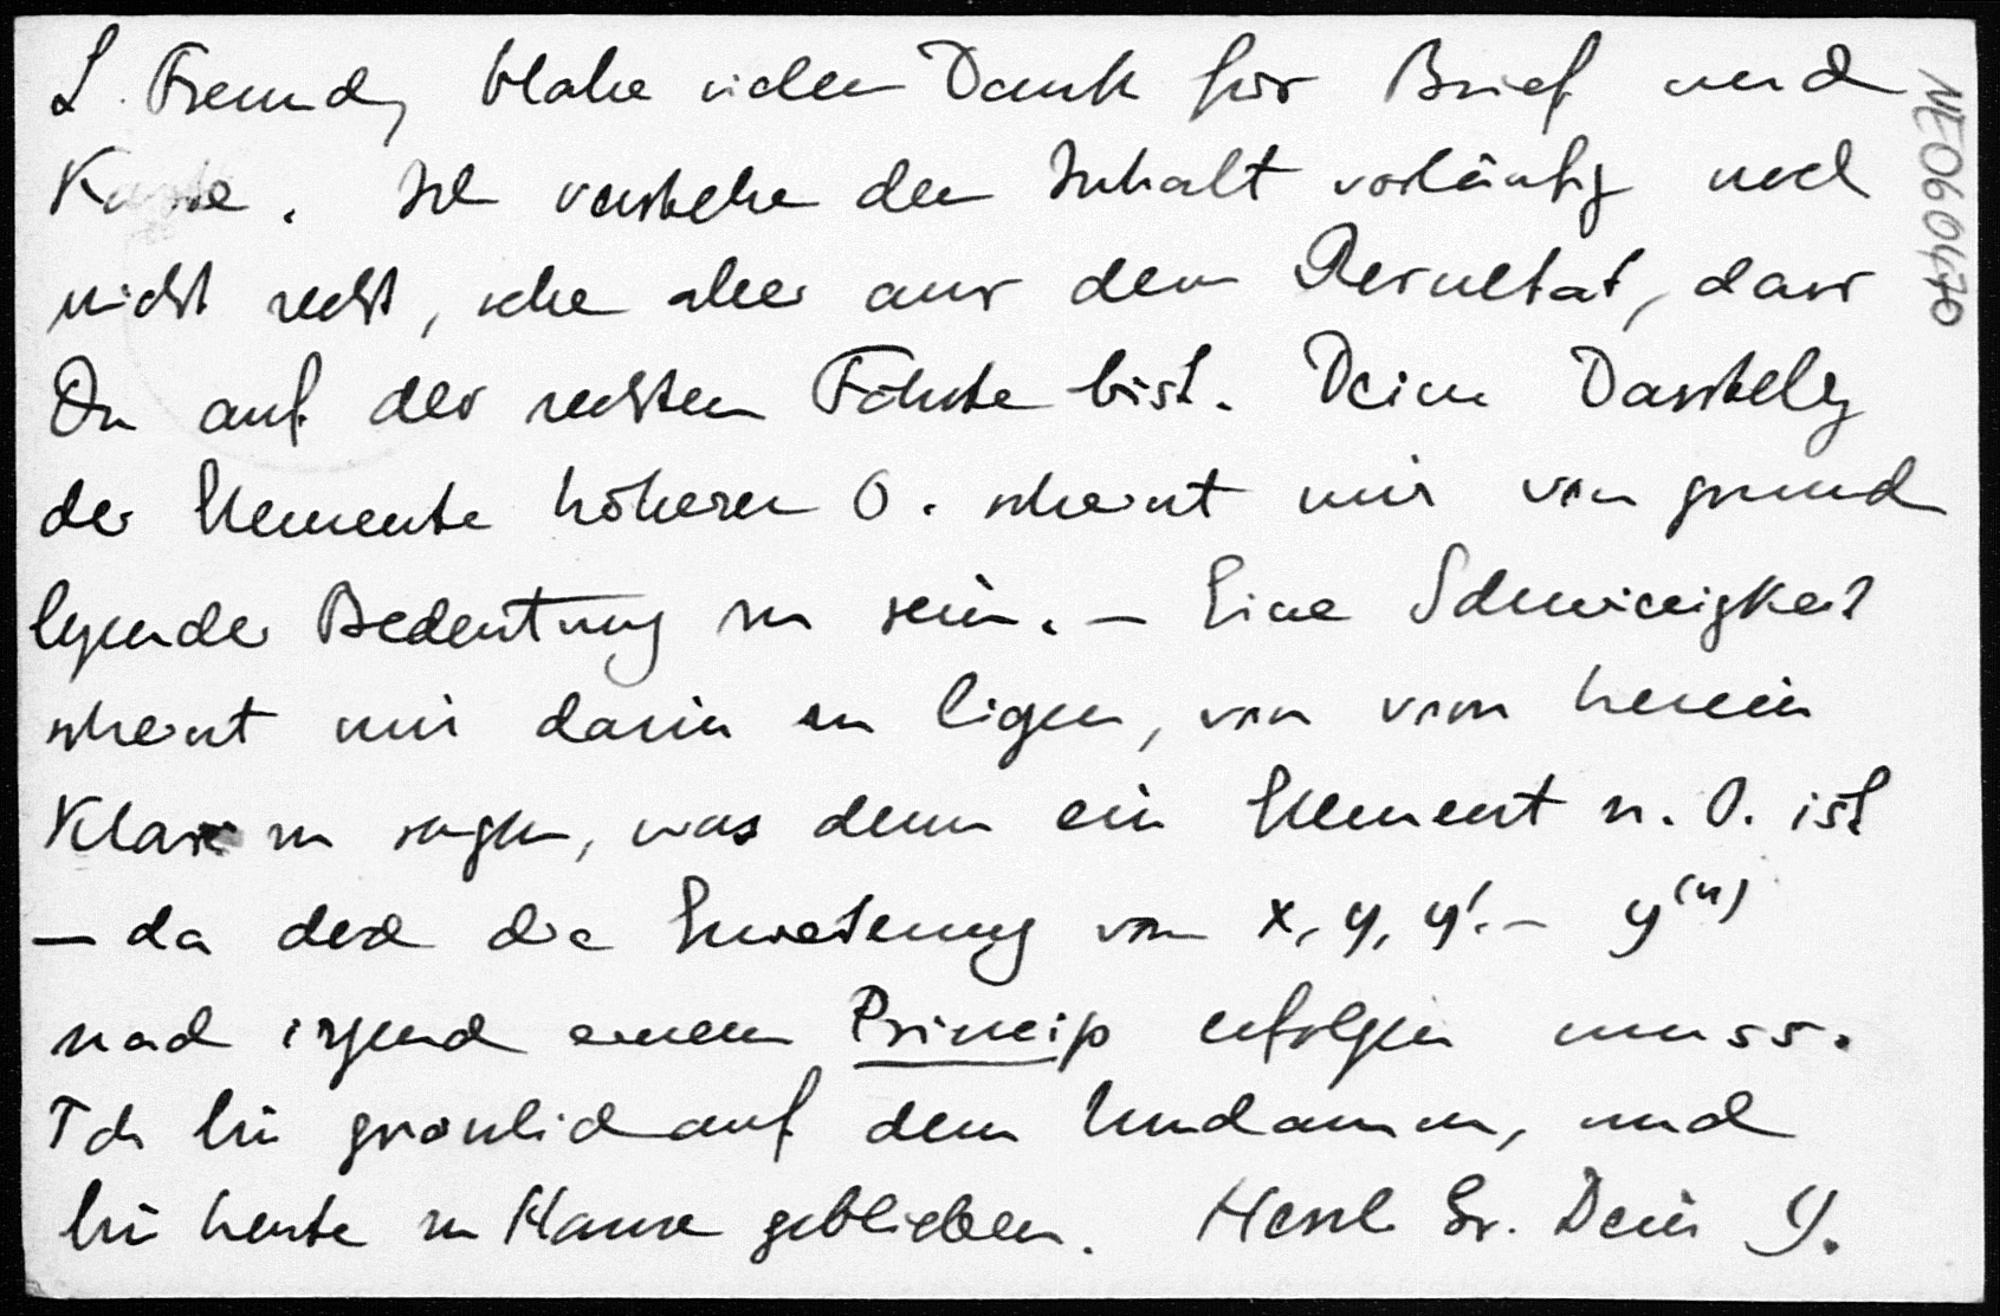 L. Freund, Habe vielen Dank für Brief und
Karte. Ich verstehe den Inhalt vorläufig noch
nicht recht, sehe aber aus dem Resultat, dass
Du auf der rechten Fährte bist. Deine Darstellg
der Elemente höherer O. scheint mir von grund
legender Bedeutung zu sein. – Eine Schwierigkeit
scheint mir darin zu liegen, von vorn herein
Klar zu sagen, was denn ein Element n. O. ist
– da doch die Erweiterung von x, y, y'. – y⁽ⁿ⁾
nach irgend einem Princip erfolgen muss.
Ich bin gräulich auf dem Hund, und
bin heute zu Hause geblieben. Herzl Gr. Dein Y.
NE060470